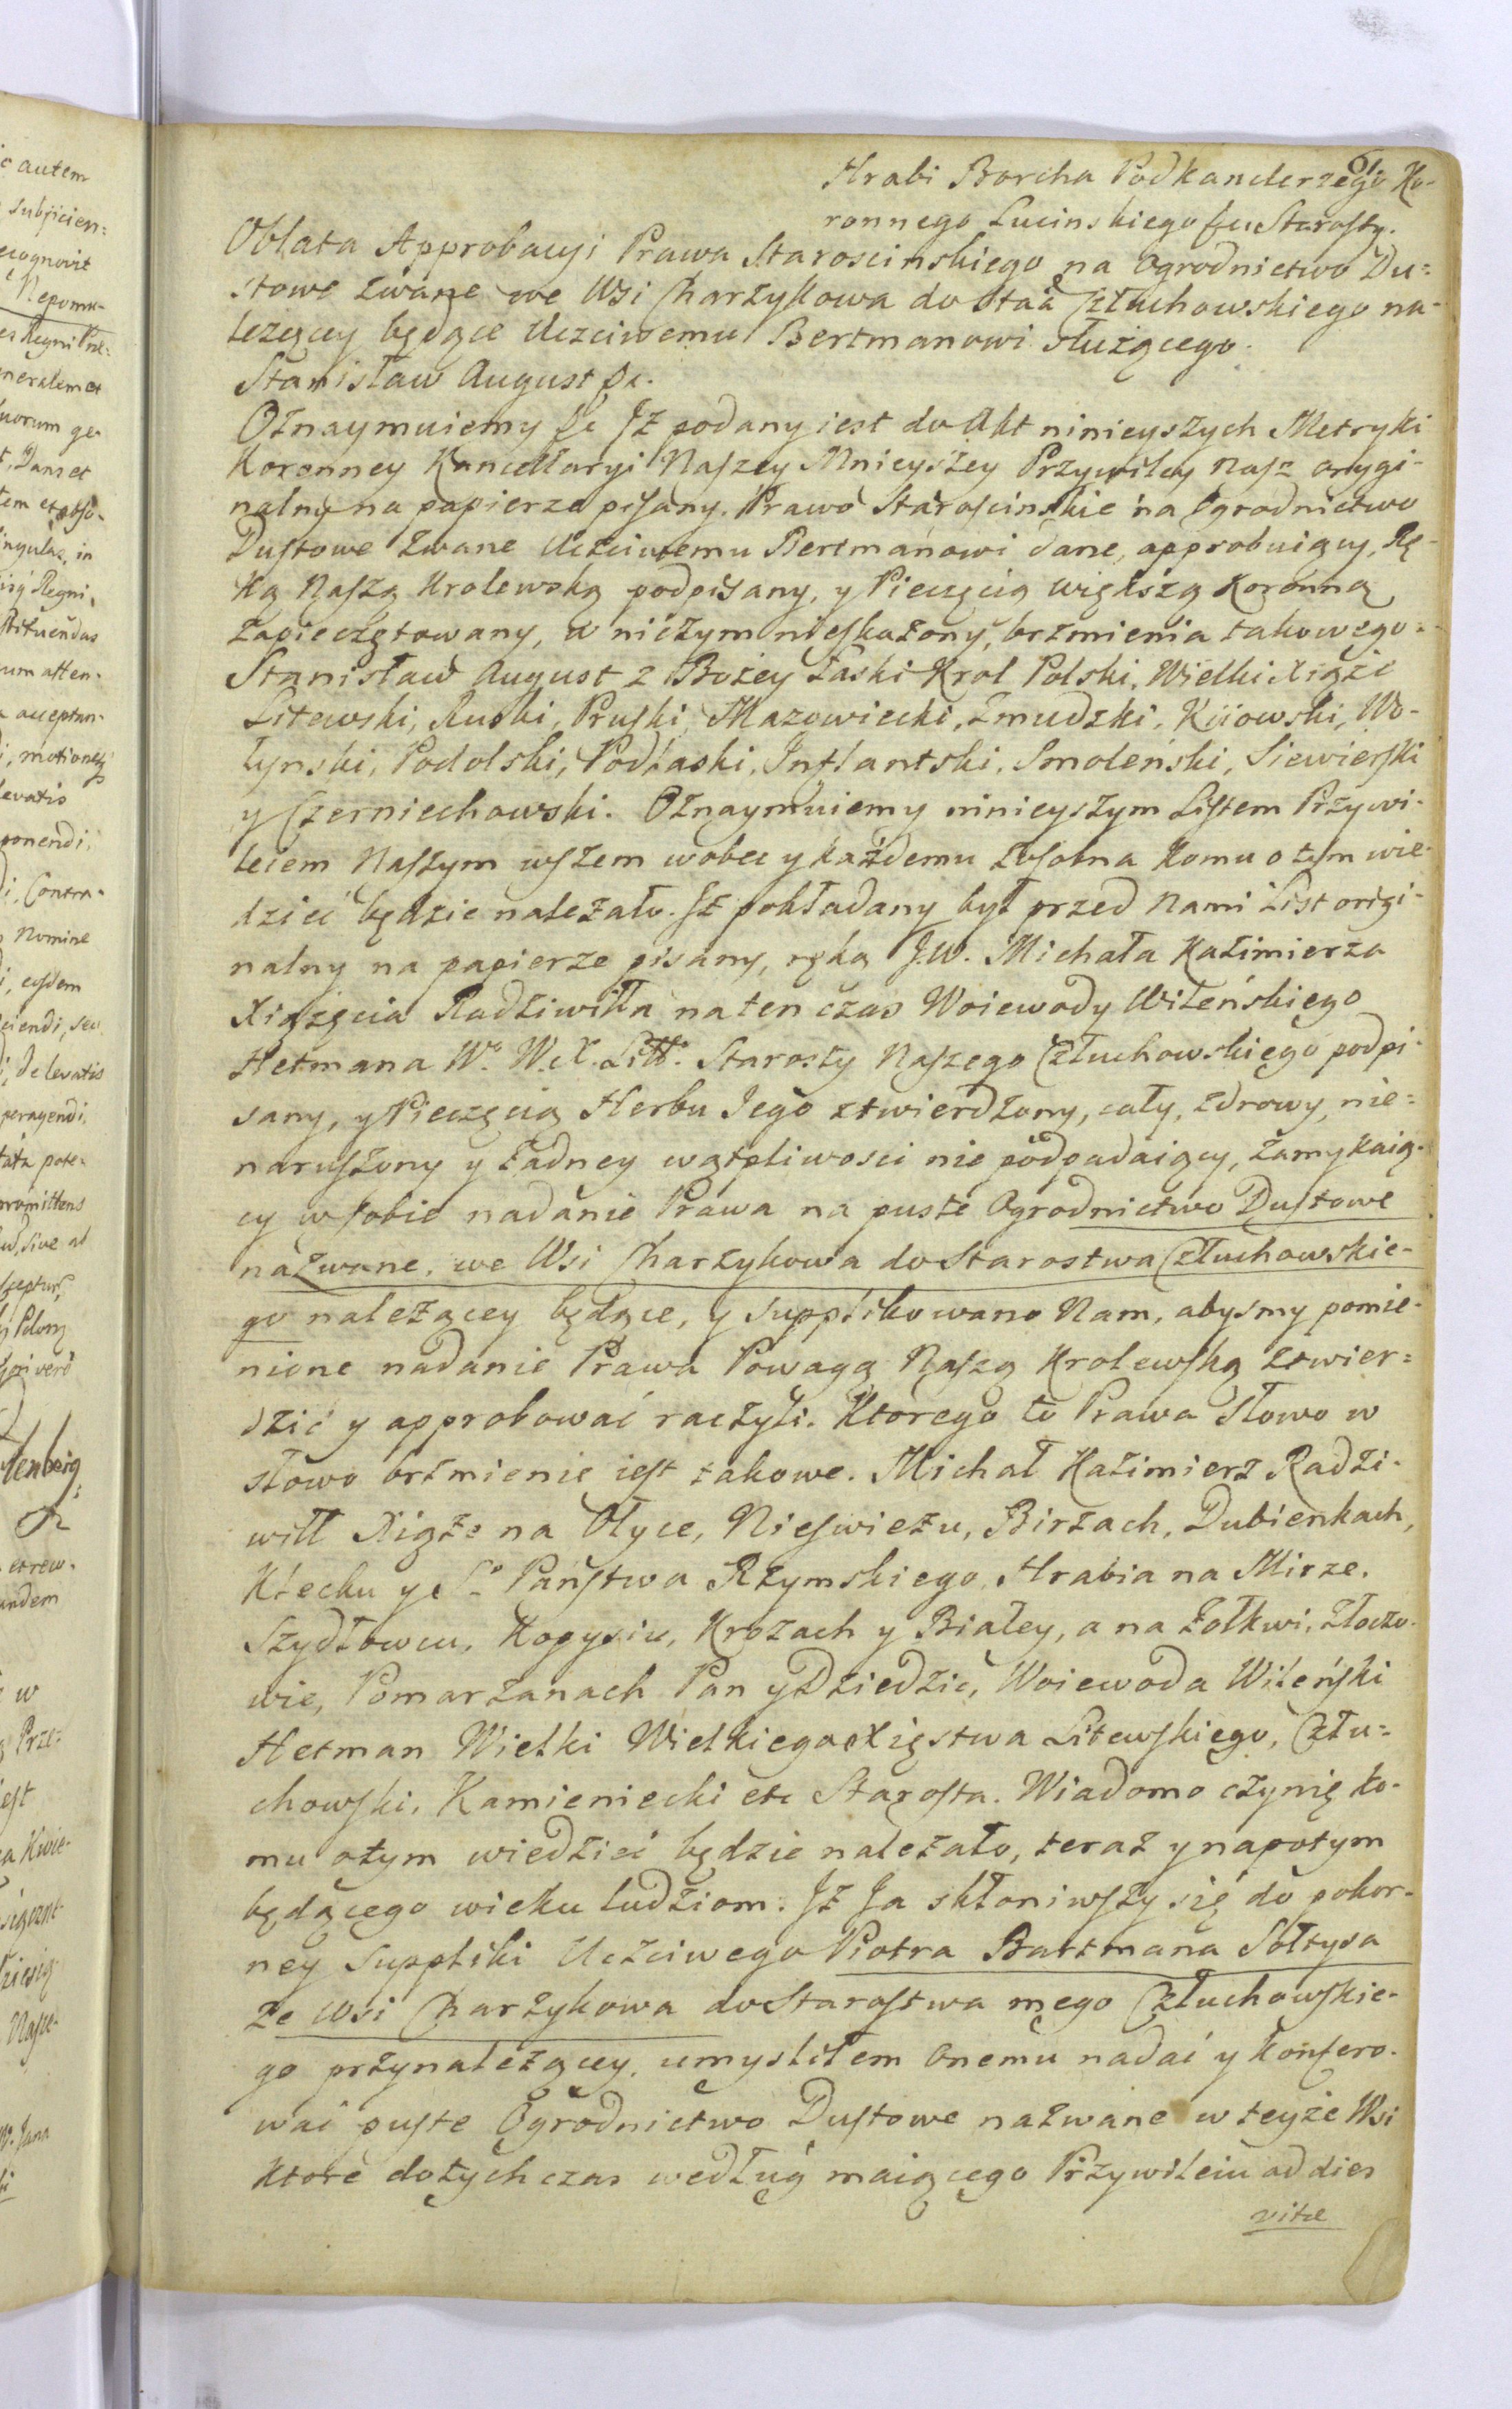 Hrabi Borcha Podkanclerzego Ko-
ronnego Lucinskiego &c Starosty.
Oblata Approbacyi Prawa Staroscinskiego na Ogrodnictwo Du=
stowe zwane we Wsi Charzykowa do Staa Człuchowskiego na-
leżącey będące Uczciwemu Bertmanowi służącego.
Stanisław August &c.
Oznaymuiemy &c Jż podany iest do Akt ninieyszych Metryki
Koronney Kancellaryi Naszey Mnieyszey Przywiley Nasz orygi-
nalny na papierze pisany, Prawo Staroscinskie na Ogrodnictwo
Dustowe zwane Uczciwemu Bertmanowi dane, approbuiący, Rę-
ką Naszą Krolewską podpisany, y Pieczęcią większą Koronną
zapieczętowany, w niczym nieskażony, brzmienia takowego.
Stanisław August z Bożey Łaski Krol Polski, Wielki Xiąże
Litewski, Ruski, Pruski, Mazowiecki, Zmudzki, Kiiowski, Wo-
łynski, Podolski, Podlaski, Inflantski, Smoleński, Siewierski
y Czerniechowski. Oznaymuiemy ninieyszym Listem Przywi-
leiem Naszym wszem wobec y każdemu zosobna komu o tym wie-
dzieć będzie należało. Jż pokładany był przed Nami List origi-
nalny na papierze pisany, ręką J.W. Michała Kazimierza
Xiążęcia Radziwiłła na ten czas Woiewody Wileńskiego
Hetmana Wo W. X. Litto Starosty Naszego Człuchowskiego podpi-
sany, y Pieczęcią Herbu Jego ztwierdzony, cały, zdrowy, nie=
naruszony y żadney wątpliwosci nie podpadaiący, zamykaią-
cy w sobie nadanie Prawa na puste Ogrodnictwo Dustowe
nazwane, we Wsi Charzykowa do Starostwa Człuchowskie-
go należącey będące, y supplikowano Nam, abysmy pomie-
nione nadanie Prawa Powagą Naszą Krolewską ztwier=
dzić y approbować raczyli. Ktorego to Prawa słowo w
słowo brzmienie iest takowe. Michał Kazimierz Radzi-
wiłł Xiąże na Ołyce, Nieswieżu, Birżach, Dubienkach,
Klecku y So Państwa Rzymskiego, Hrabia na Mirze,
Szydłowcu, Kopysiu, Krozach y Białey, a na Żołkwi, Złoczo-
wie, Pomarzanach Pan y Dziedzic, Woiewoda Wileński
Hetman Wielki Wielkiego Xięstwa Litewskiego, Człu=
chowski, Kamieniecki etc Starosta. Wiadomo czynię ko-
mu o tym wiedzieć będzie należało, teraz y napotym
będącego wieku ludziom. Jż Ja skłoniwszy się do pokor-
ney suppliki Uczciwego Piotra Bartmana Sołtysa
ze Wsi Charzykowa do Starostwa mego Człuchowskie-
go przynależącey, umyslilem onemu nadać y konfero-
wać puste Ogrodnictwo Dustowe nazwane w teyże Wsi
ktore dotychczas według maiącego Przywileiu ad dies
vitæ